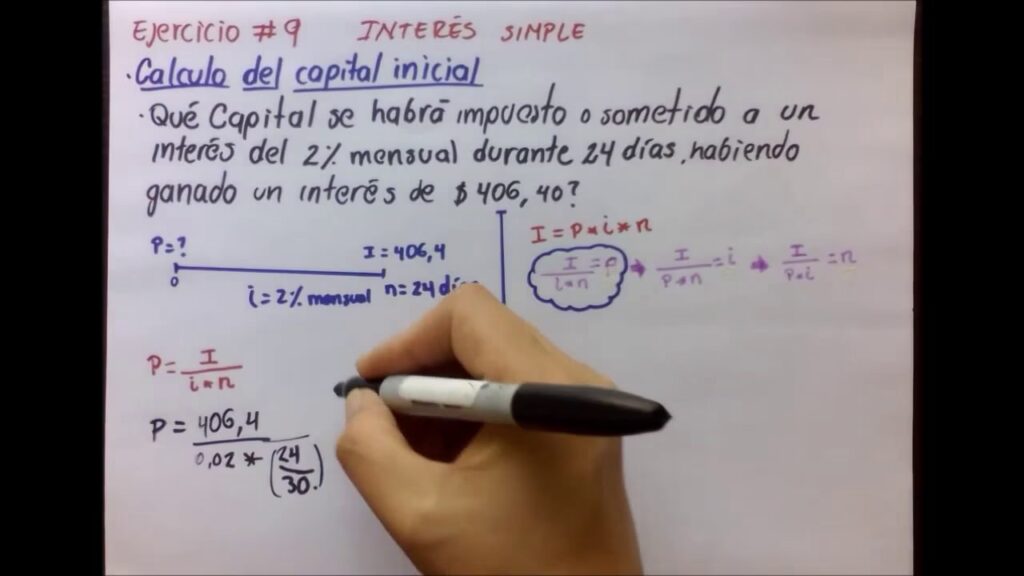 Ejercicio #9 INTERÉS SIMPLE
·Calculo del capital inicial
·Qué Capital se habrá impuesto o sometido a un
interés del 2% mensual durante 24 días, habiendo
ganado un interés de $406,40?
P=?
I=406,4
0
i=2% mensual n=24 días
I=P*i*n
I/i*n=P → I/P*n=i → I/P*i=n
P=I/i*n
P=406,4/0,02*(24/30)